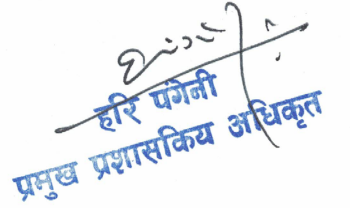 हरि पंगेनी
प्रमुख प्रशासकिय अधिकृत